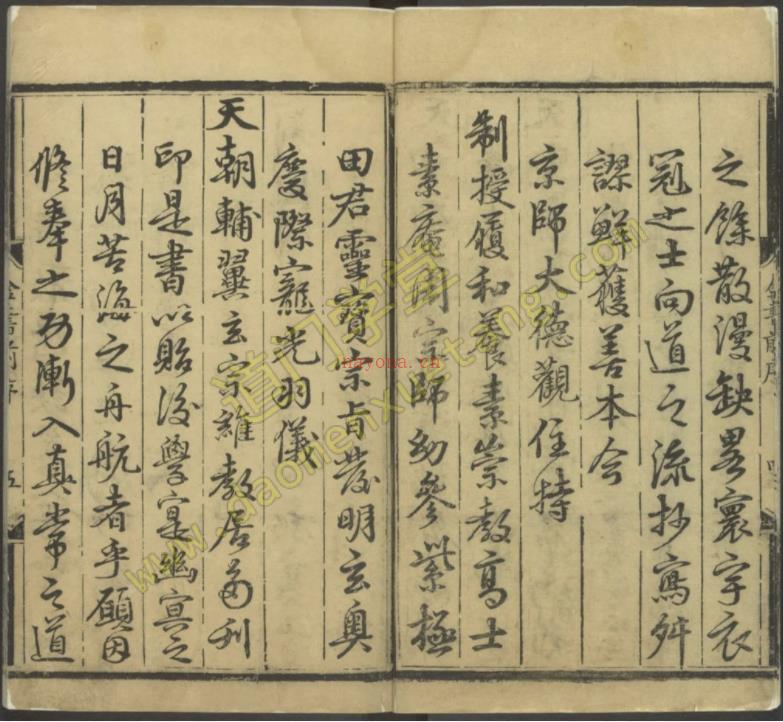 之餘散漫缺畧寰宇衣
冠之士向道之流抄寫舛
謬鮮獲善本今
京師大德觀住持
制授履和養素崇教高士
素庵周宗師幼參紫極
田君靈寶宗旨發明玄奥
慶際寵光羽儀
天朝輔翼玄宗維教居多刋
印是書以貽後學寔幽冥之
日月苦海之舟航者乎願因
修奉之功漸入真常之道
金書前序
五
道门学堂
www.daomenxuetang.com
nayona.cn